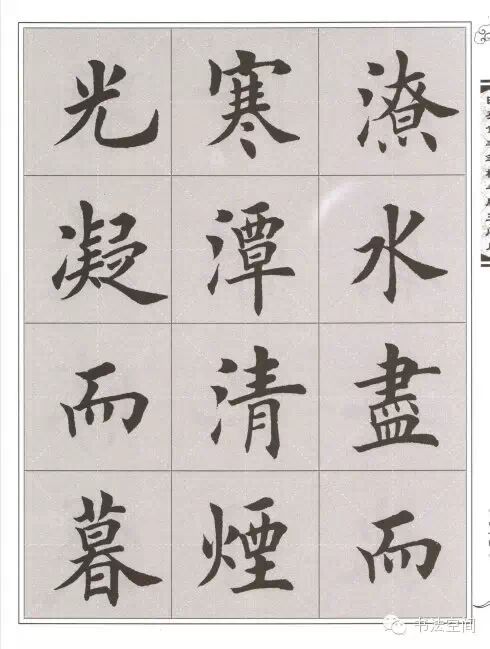 潦水盡而
寒潭清煙
光凝而暮
书法空间